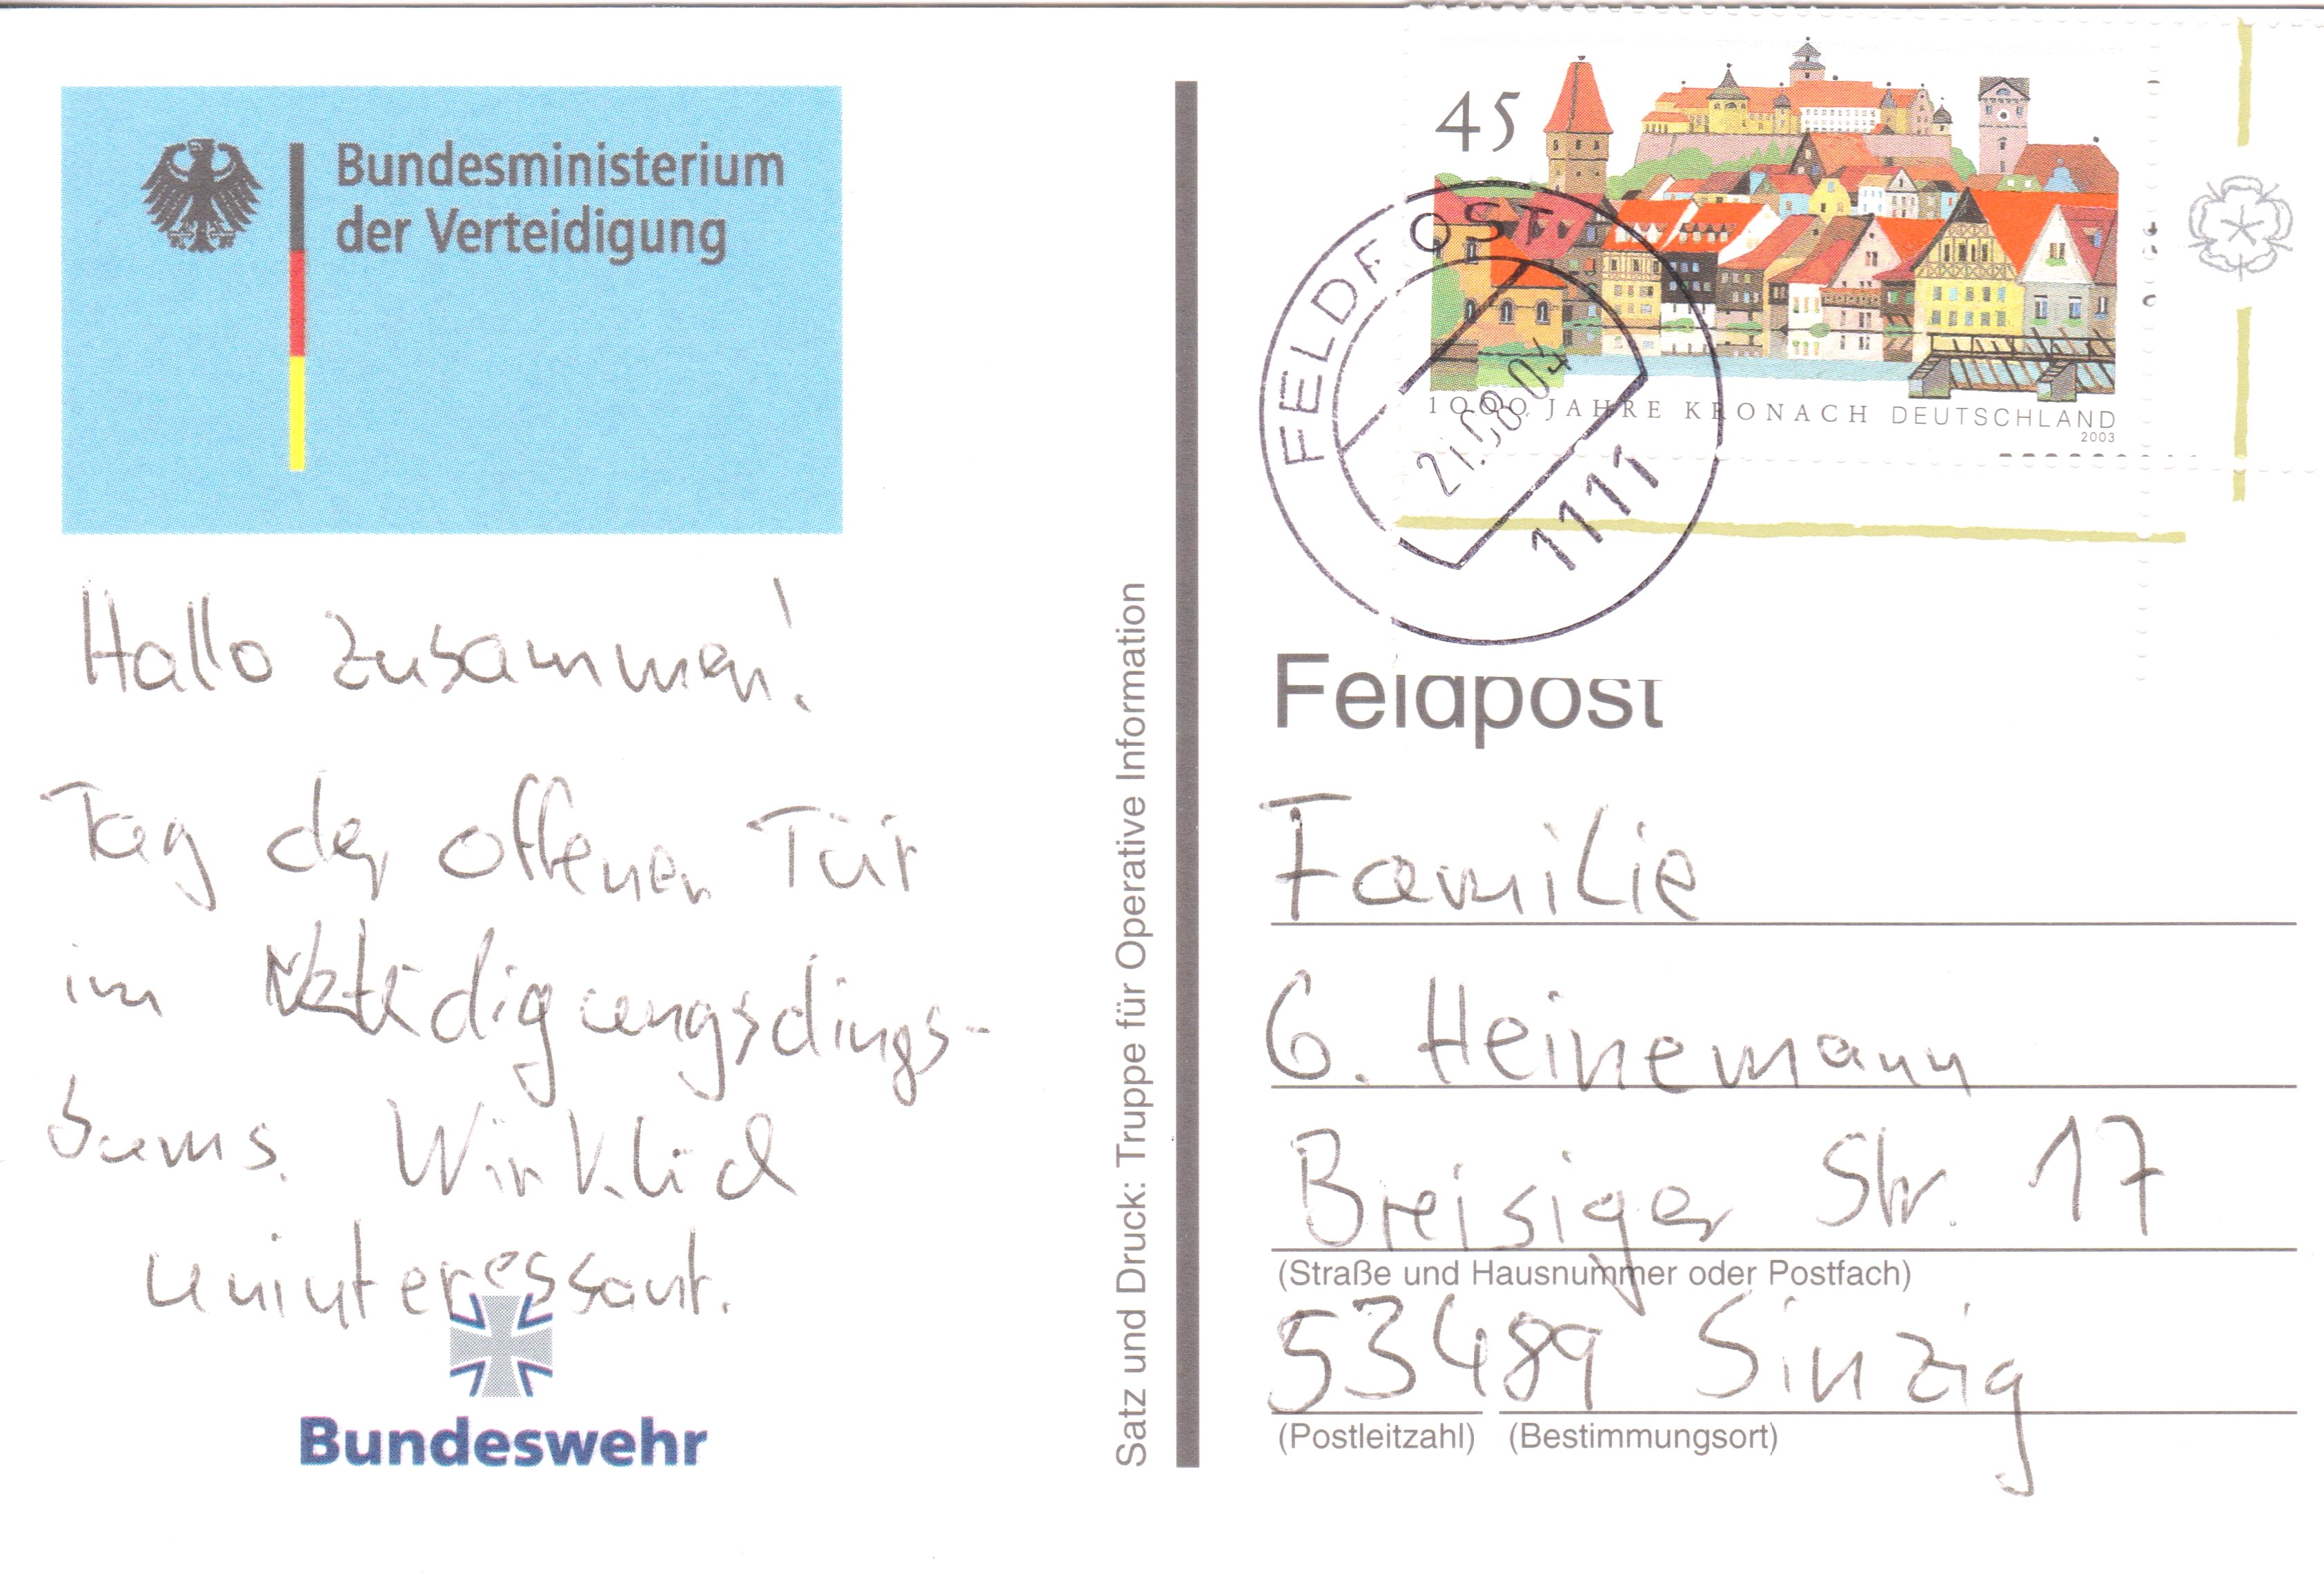 Bundesministerium
der Verteidigung
Hallo zusammen!
Tag der offenen Tür
im Verteidigungsdings-
bums. Wirklich
uninteressant.
Bundeswehr
Satz und Druck: Truppe für Operative Information
45
1000 JAHRE KRONACH DEUTSCHLAND
2003
FELDPOST
21.08.04
1111
Feldpost
Familie
G. Heinemann
Breisiger Str. 17
(Straße und Hausnummer oder Postfach)
53489 Sinzig
(Postleitzahl) (Bestimmungsort)